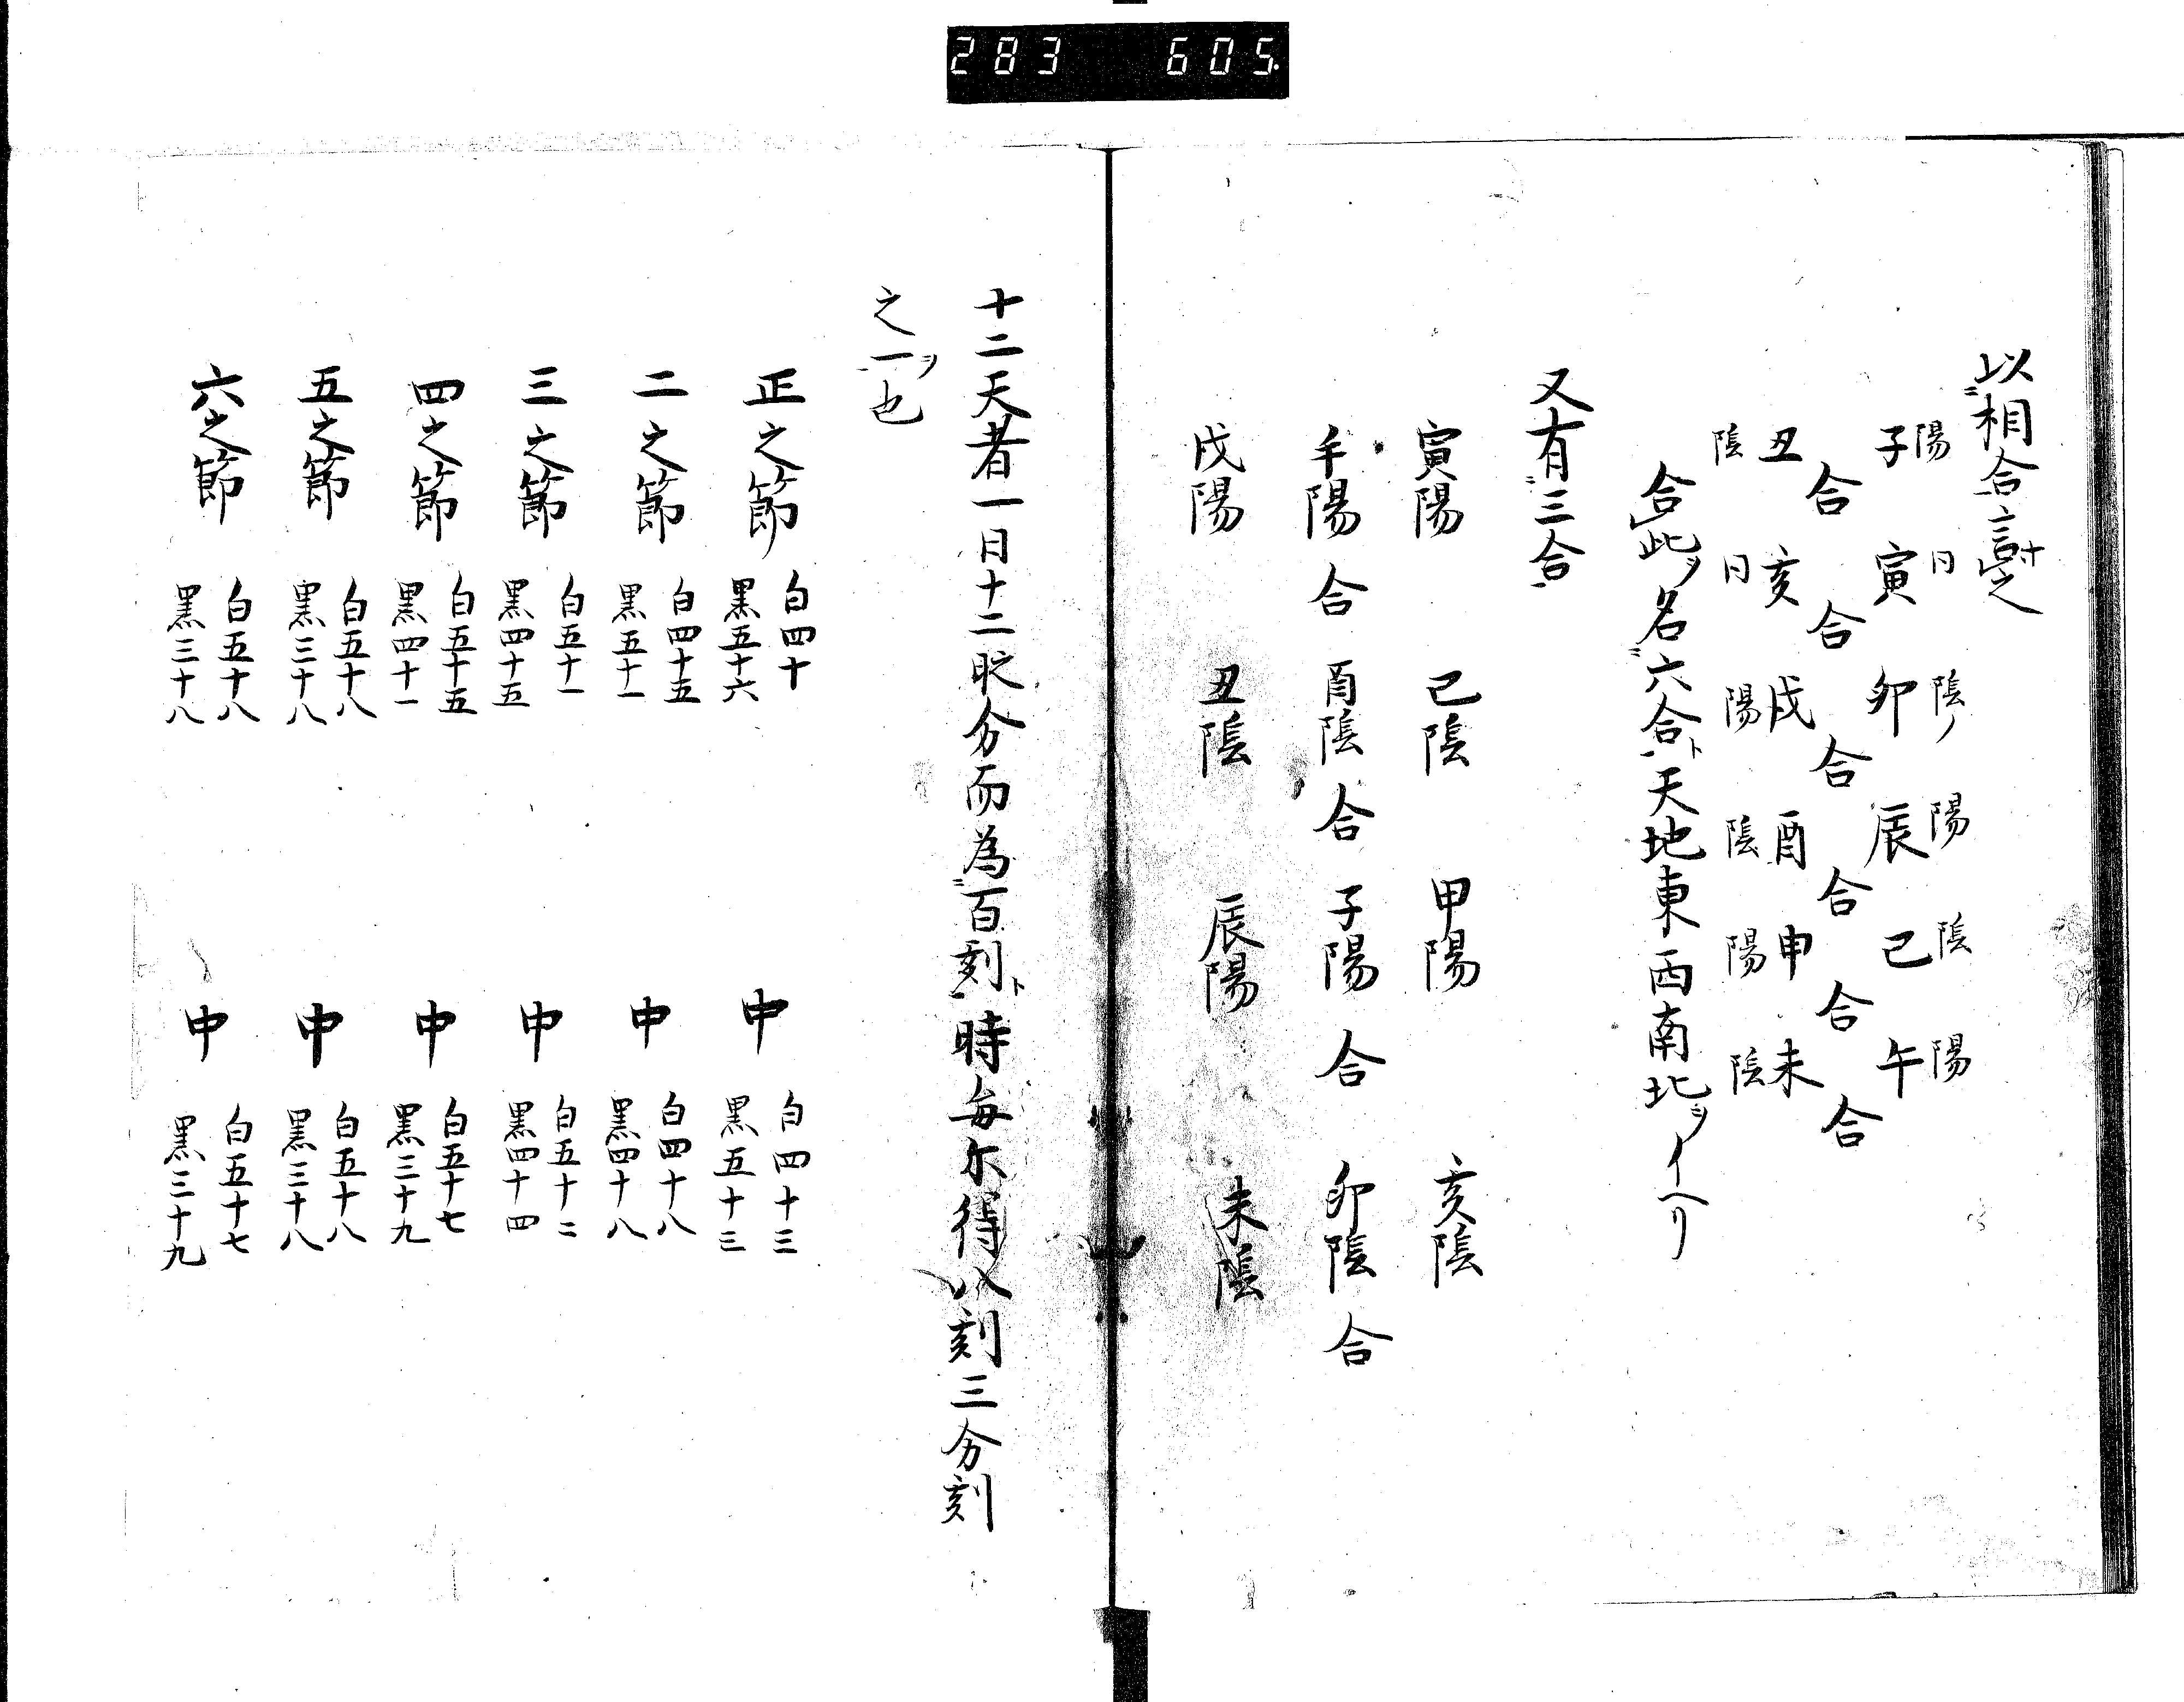 283 605.
以相合言之
陽 日 陰 陽 陰 陽
子 寅 卯 辰 巳 午
合 合 合 合 合 合
丑 亥 戌 酉 申 未
陰 日 陽 陰 陽 陰
合此ヲ名六合ト天地東西南北ヲイヘリ
又有三合
寅陽 己陰 甲陽 亥陰
午陽合酉陰合子陽合卯陰合
戌陽 丑陰 辰陽 未陰
十二天者一日十二時分而為百刻ト時毎尓得八刻三分刻
之一ヲ也
正之節 白四十 黒五十六 中 白四十三 黒五十三
二之節 白四十五 黒五十一 中 白四十八 黒四十八
三之節 白五十一 黒四十五 中 白五十二 黒四十四
四之節 白五十五 黒四十一 中 白五十七 黒三十九
五之節 白五十八 黒三十八 中 白五十八 黒三十八
六之節 白五十八 黒三十八 中 白五十七 黒三十九